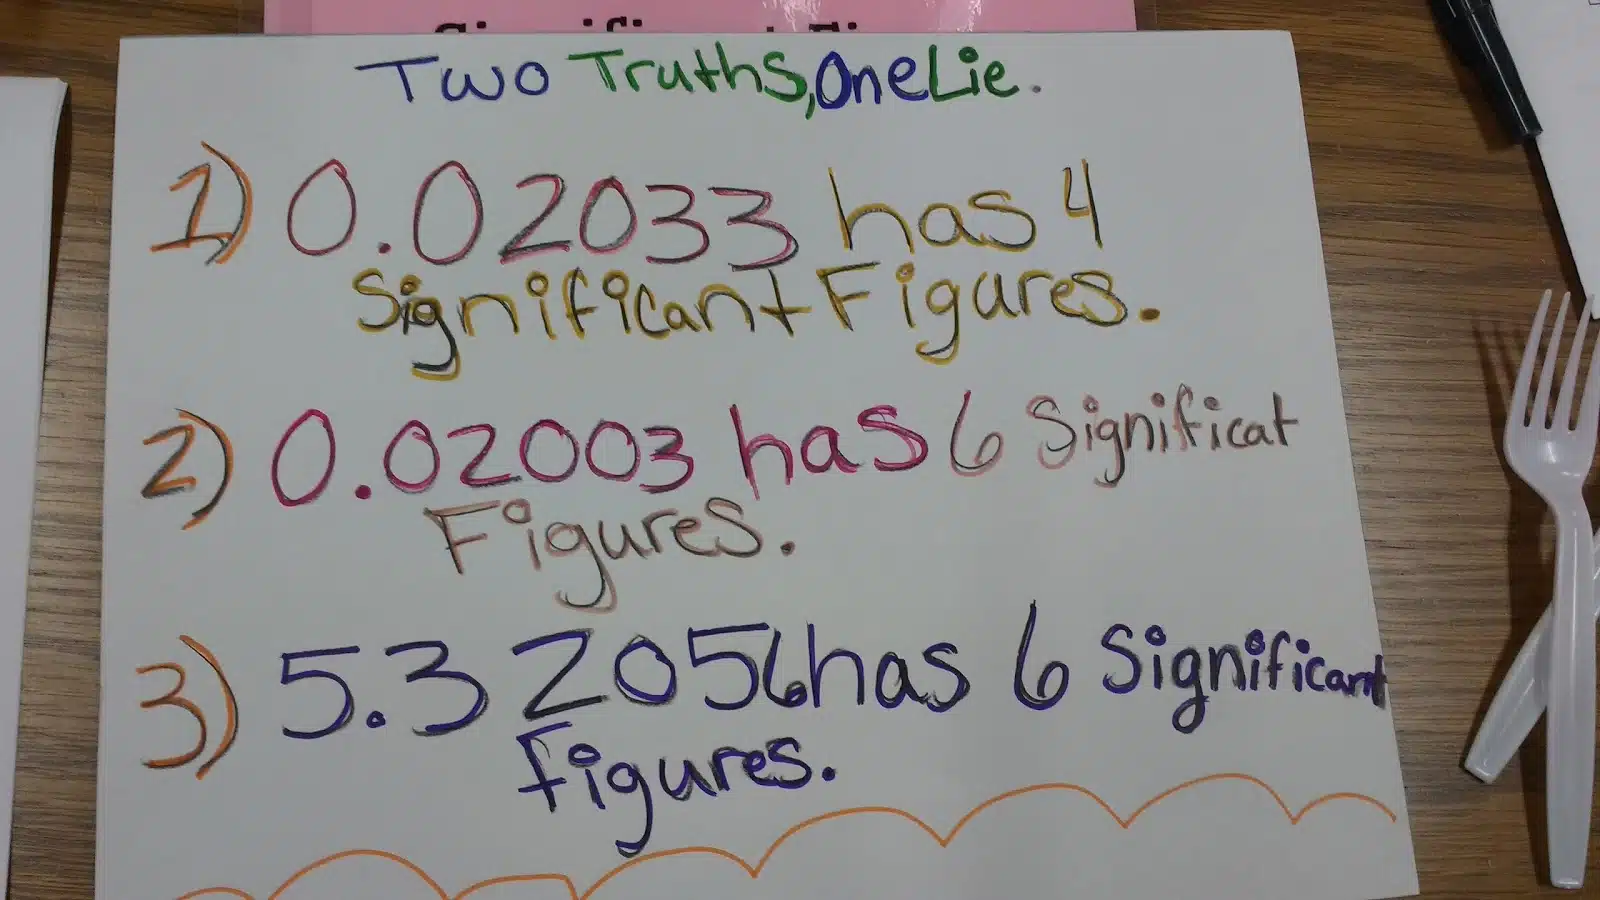 Two Truths, One Lie.
1) 0.02033 has 4
Significant Figures.
2) 0.02003 has 6 Significat
Figures.
3) 5.32056 has 6 Significant
figures.